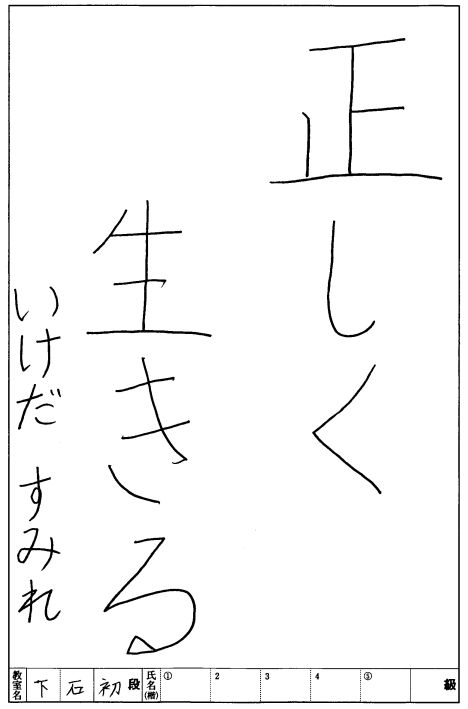 正しく
生きる
いけだ すみれ
教室名 下 石 初 段 氏名(楷) ① 2 3 4 ⑤ 級